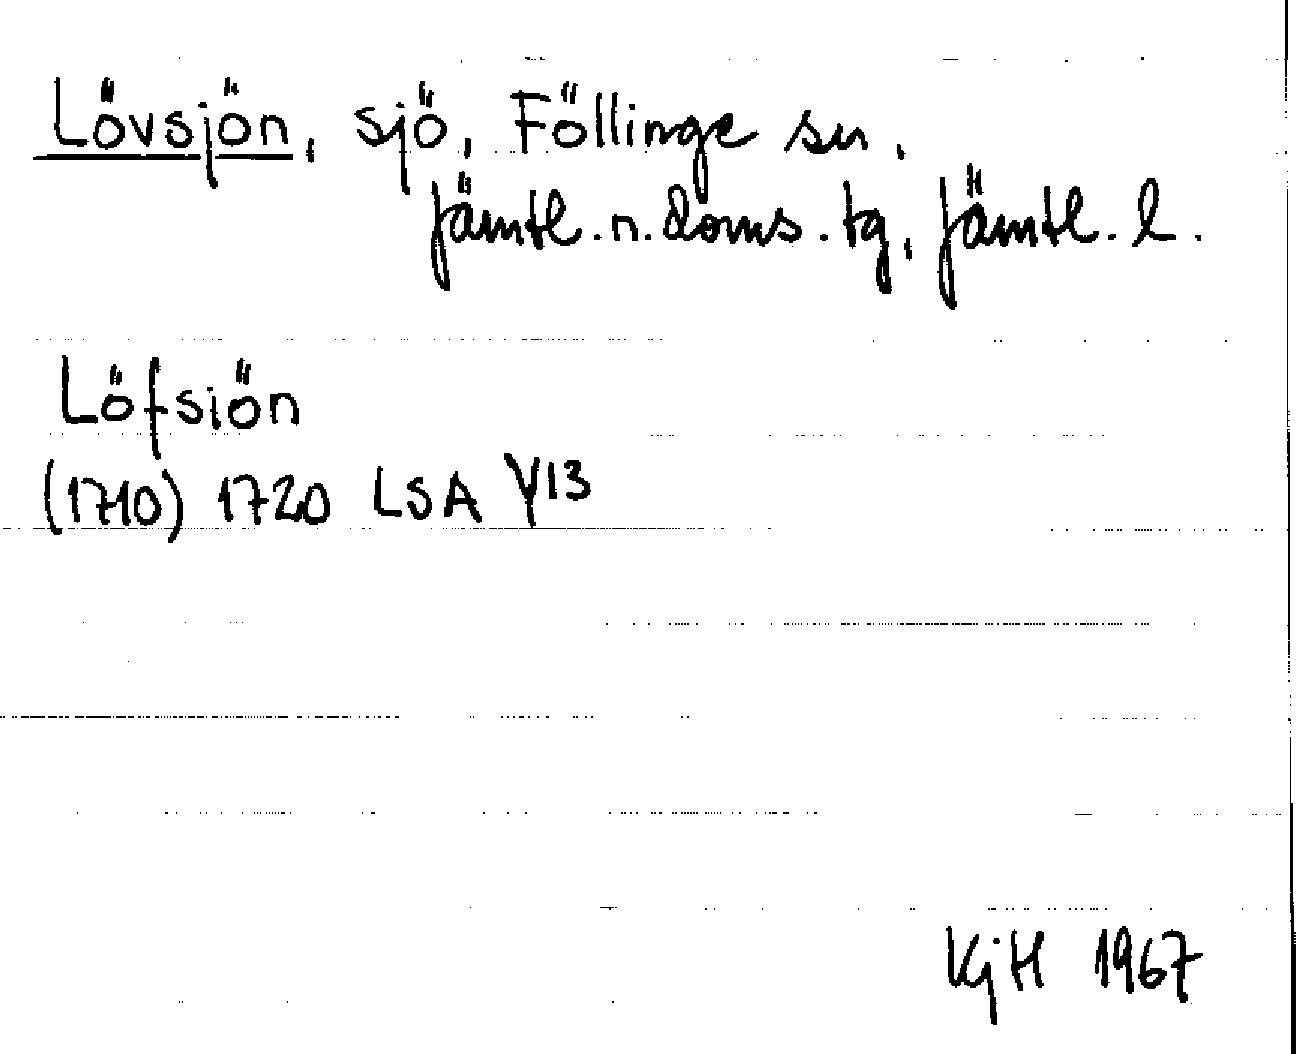 Lövsjön, sjö, Föllinge sn,
Jämtl. n. doms. tg, Jämtl. l.
Löfsiön
(1710) 1720 LSA Y13
KjH 1967